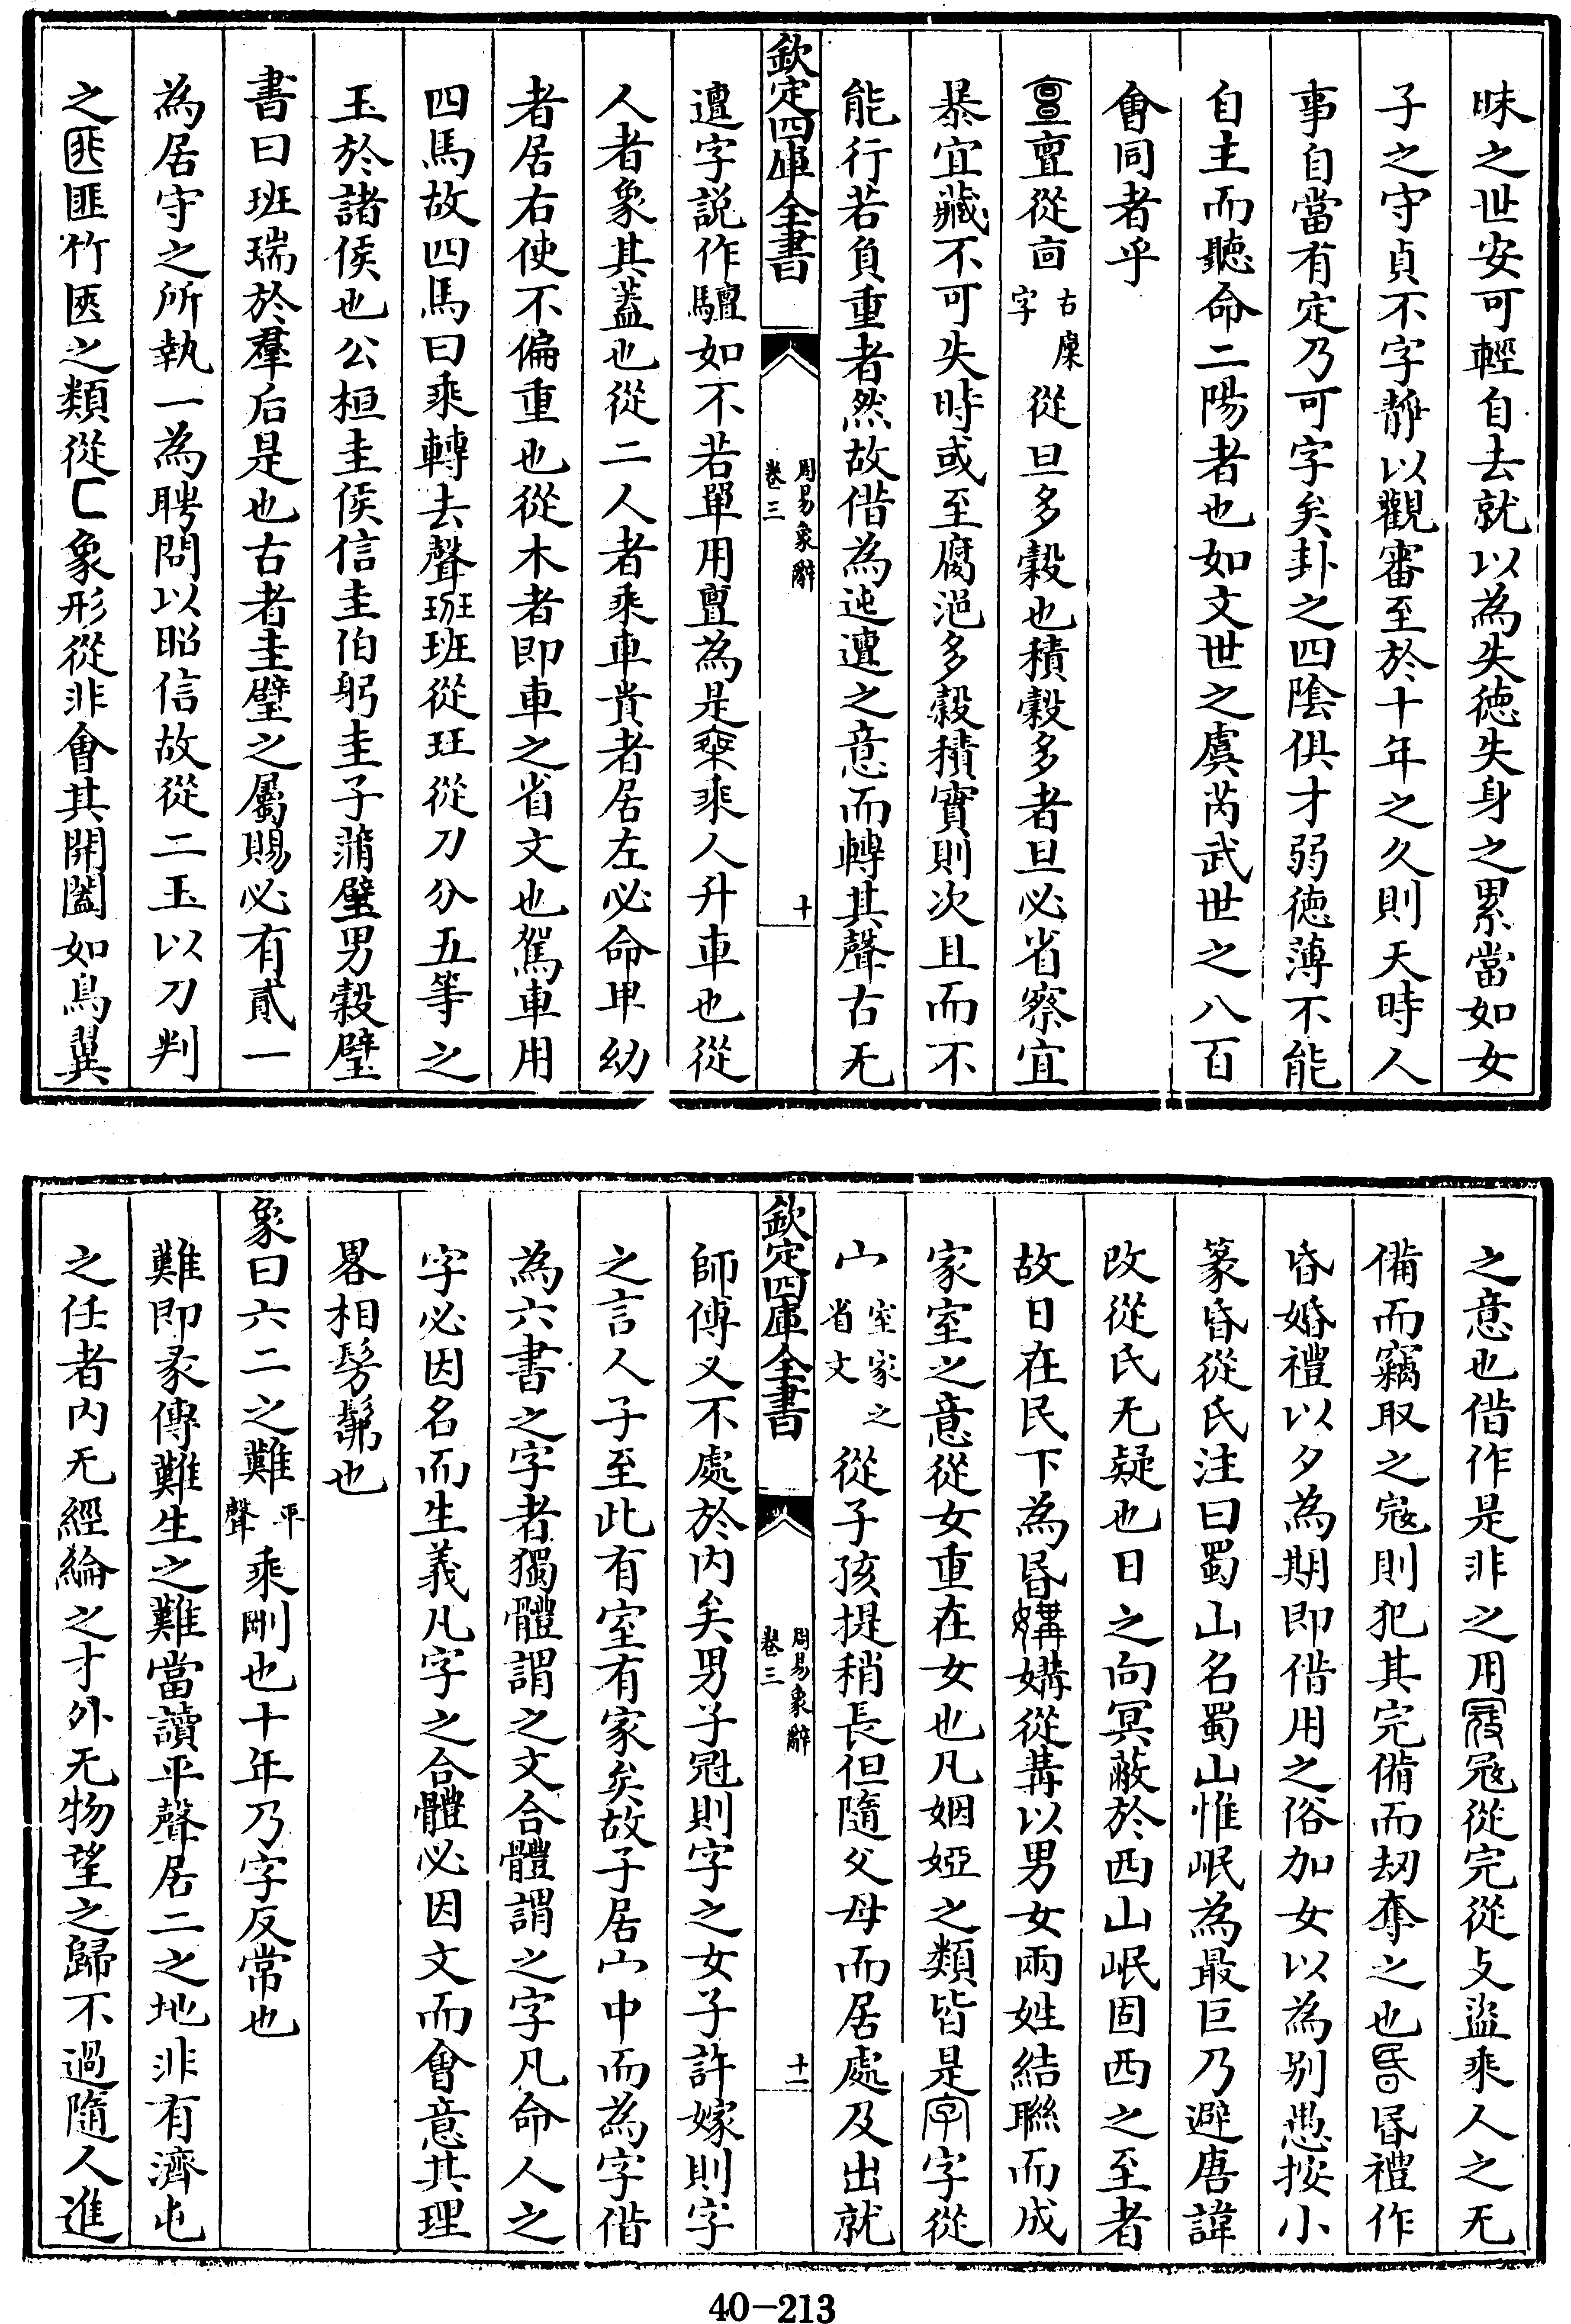 昧之世安可輕自去就以為失徳失身之累當如女
子之守貞不字静以觀審至於十年之久則天時人
事自當有定乃可字矣卦之四陰俱才弱徳薄不能
自主而聽命二陽者也如文世之虞芮武世之八百
會同者乎
亶亶從㐭古廩字從旦多穀也積穀多者旦必省察宜
暴宜藏不可失時或至腐浥多穀積實則次且而不
能行若負重者然故借為迍邅之意而轉其聲古无
欽定四庫全書
周易象辭
卷三
十
邅字説作驙如不若單用亶為是椉乘人升車也從
人者象其葢也從二人者乘車貴者居左必命甲幼
者居右使不偏重也從木者即車之省文也駕車用
四馬故四馬曰乘轉去聲班班從玨從刀分五等之
玉於諸侯也公桓圭侯信圭伯躬圭子蒲璧男穀璧
書曰班瑞於羣后是也古者圭璧之屬賜必有貳一
為居守之所執一為聘問以昭信故從二玉以刀判
之匪匪竹匧之類從匚象形從非會其開闔如鳥翼
之意也借作是非之用寇宼從完從攴盜乘人之无
備而竊取之宼則犯其完備而刼奪之也昬昬禮作
昏婚禮以夕為期即借用之俗加女以為別愚按小
篆昏從氏注曰蜀山名蜀山惟岷為最巨乃避唐諱
改從氏无疑也日之向冥蔽於西山岷固西之至者
故日在民下為昬媾媾從冓以男女兩姓結聯而成
家室之意從女重在女也凡姻婭之類皆是字字從
宀室家之省文從子孩提稍長但隨父母而居處及出就
欽定四庫全書
周易象辭
卷三
十一
師傅又不處於内矣男子冠則字之女子許嫁則字
之言人子至此有室有家矣故子居宀中而為字借
為六書之字者獨體謂之文合體謂之字凡命人之
字必因名而生義凡字之合體必因文而會意其理
畧相髣髴也
象曰六二之難平聲乘剛也十年乃字反常也
難即彖傳難生之難當讀平聲居二之地非有濟屯
之任者内无經綸之才外无物望之歸不過隨人進
40-213